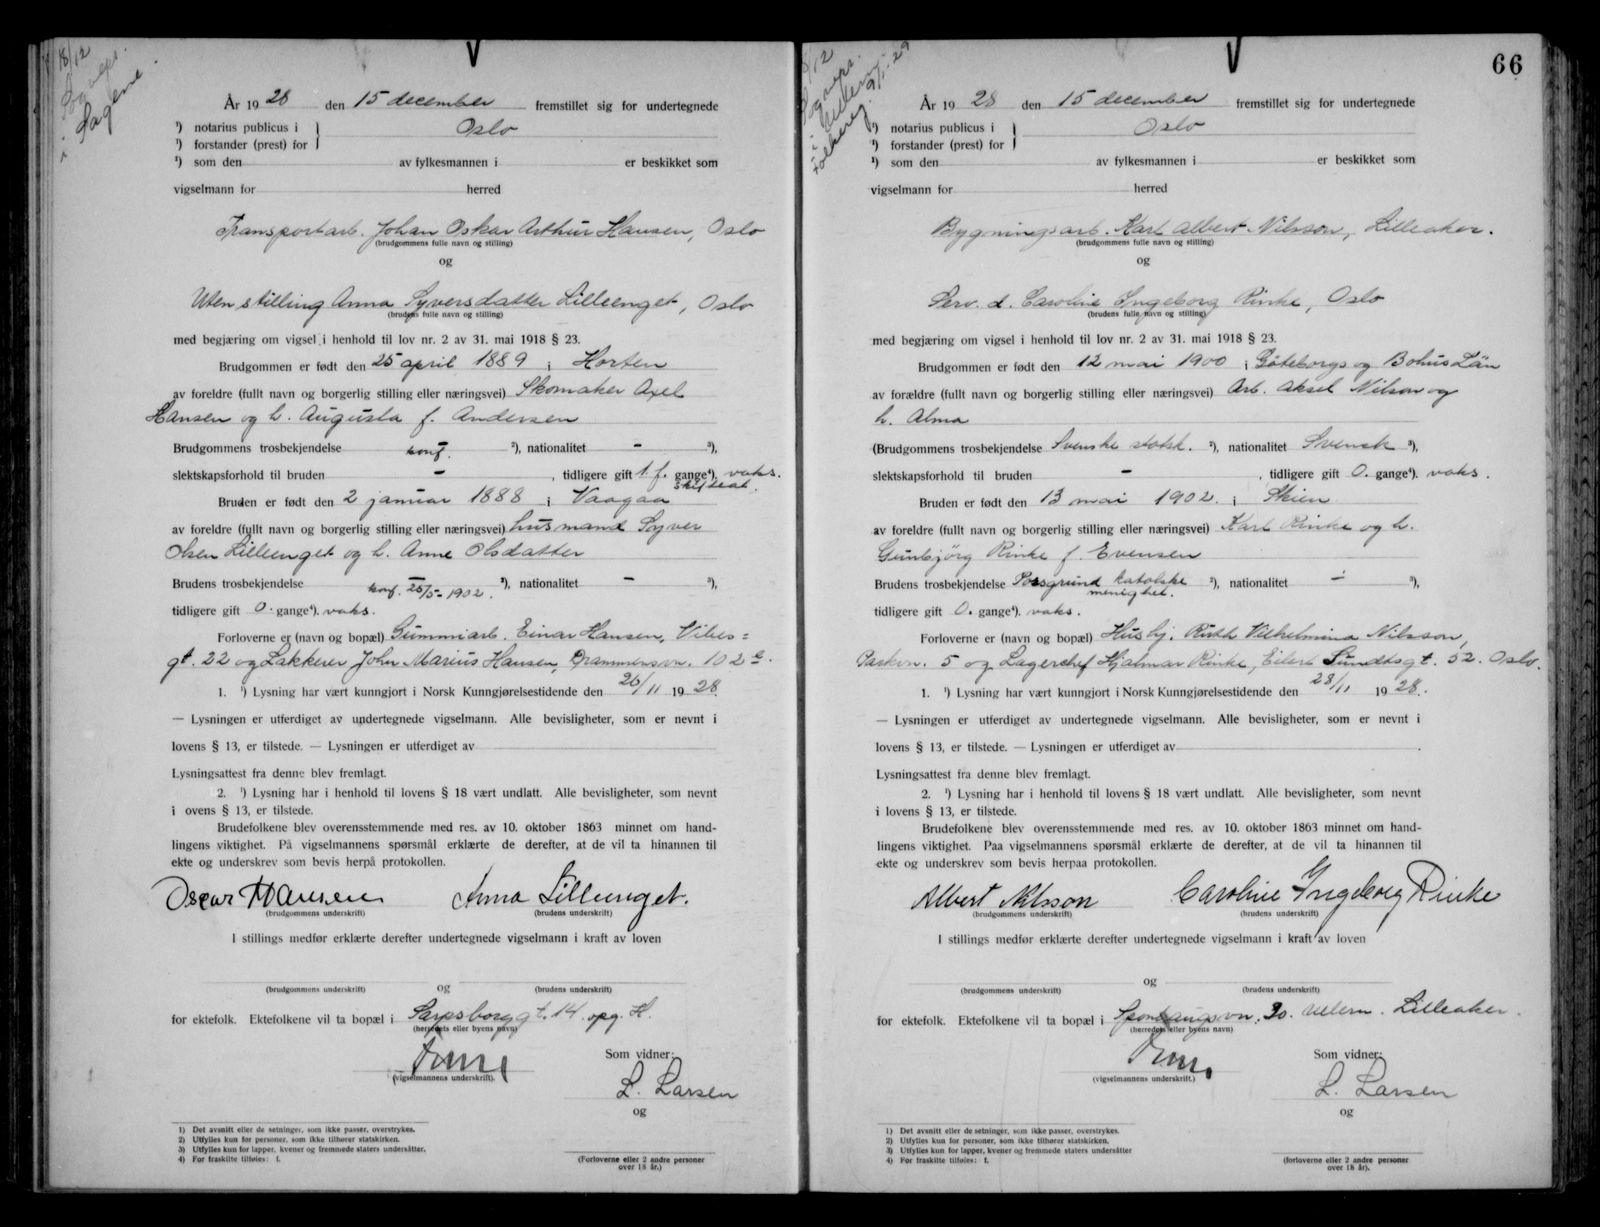 18/12
i Sagene.
År 1928 den 15 december fremstillet sig for undertegnede
¹) notarius publicus i } Oslo
¹) forstander (prest) for
¹) som den av fylkesmannen i er beskikket som
vigselmann for herred
Transportarb. Johan Oskar Arthur Hansen, Oslo
(brudgommens fulle navn og stilling)
og
Uten stilling Anna Syversdatter Lilleenget, Oslo
(brudens fulle navn og stilling)
med begjæring om vigsel i henhold til lov nr. 2 av 31. mai 1918 § 23.
Brudgommen er født den 25 april 1889 i Horten
av foreldre (fullt navn og borgerlig stilling eller næringsvei) Skomaker Axel
Hansen og h. Augusta f. Andersen
Brudgommens trosbekjendelse konf. ²), nationalitet – ³),
slektskapsforhold til bruden – , tidligere gift 1. f. gange⁴). vaks.
skif
Bruden er født den 2 januar 1888 i Vaagaa
av foreldre (fullt navn og borgerlig stilling eller næringsvei) husmand Syver
Olsen Lilleenget og h. Anne Olsdatter
Brudens trosbekjendelse konf. 25/5-1902. ²), nationalitet – ³),
tidligere gift 0. gange⁴). vaks.
Forloverne er (navn og bopæl) Gummiarb. Einar Hansen, Vibes=
gt. 22 og Lakkerer John Marius Hansen, Drammensvn. 102
1. ¹) Lysning har vært kunngjort i Norsk Kunngjørelsestidende den 26/11 1928.
— Lysningen er utferdiget av undertegnede vigselmann. Alle bevisligheter, som er nevnt i
lovens § 13, er tilstede. — Lysningen er utferdiget av
Lysningsattest fra denne blev fremlagt.
2. ¹) Lysning har i henhold til lovens § 18 vært undlatt. Alle bevisligheter, som nevnt
i ovens § 13, er tilstede.
Brudefolkene blev overensstemmende med res. av 10. oktober 1863 minnet om hand-
lingens viktighet. På vigselmannens spørsmål erklærte de derefter, at de vil ta hinannen til
ekte og underskrev som bevis herpå protokollen.
Oscar Hansen Anna Lilleenget.
(brudgommens underskrift) (brudens underskrift)
I stillings medfør erklærte derefter undertegnede vigselmann i kraft av loven
og
(brudgommens underskrift) (brudens underskrift)
for ektefolk. Ektefolkene vil ta bopæl i Sarpsborggt. 14. opg. H.
(herredets eller byens navn)
(vigselmannens underskrift).
Som vidner:
L. Larsen
og
1) Det avsnitt eller de setninger, som ikke passer, overstrykes.
2) Utfylles kun for personer, som ikke tilhører statskirken.
3) Utfylles kun for lapper, kvener og fremmede staters undersåtter.
4) For fraskilte tilføies: f.
(Forloverne eller 2 andre personer
over 18 år.)
66
År 1928 den 15 december fremstillet sig for undertegnede
¹) notarius publicus i } Oslo
¹) forstander (prest) for
¹) som den av fylkesmannen i er beskikket som
vigselmann for herred
Bygningsarb. Karl Albert Nilsson, Lilleaker.
(brudgommens fulle navn og stilling)
og
Serv. d. Caroline Ingeborg Rinke, Oslo
(brudens fulle navn og stilling)
med begjæring om vigsel i henhold til lov nr. 2 av 31. mai 1918 § 23.
Brudgommen er født den 12 mai 1900 i Göteborgs og Bohus Län
av forældre (fullt navn og borgerlig stilling eller næringsvei) Arb. Aksel Nilson og
h. Alma
(Brudgommens trosbekjendelse Svenske statsk. ²), nationalitet Svensk ³),
slektskapsforhold til bruden – , tidligere gift 0. gange⁴). vaks.
Bruden er født den 13 mai 1902. i Skien
av foreldre (fullt navn og borgerlig stilling eller næringsvei) Karl Rinke og h.
Gunbjörg Rinke f. Evensen
Brudens trosbekjendelse Porsgrund katolske ²), nationalitet ÷ ³),
menighet.
tidligere gift 0. gange⁴). vaks.
Forloverne er (navn og bopæl) Hushj. Ruth Vilhelmina Nilsson,
Parkvn. 5 og Lagerchef Hjalmar Rinke, Eilert Sundtsgt. 52. Oslo.
1. ¹) Lysning har vært kunngjort i Norsk Kunngjørelsestidende den 28/11 1928.
— Lysningen er utferdiget av undertegnede vigselmann. Alle bevisligheter, som er nevnt i
lovens § 13, er tilstede. — Lysningen er utferdiget av
Lysningsattest fra denne blev fremlagt.
2. ¹) Lysning har i henhold til lovens § 18 vært undlatt. Alle bevisligheter, som nevnt
i lovens § 13, er tilstede.
Brudefolkene blev overensstemmende med res. av 10. oktober 1863 minnet om hand-
lingens viktighet. Paa vigselmannens spørsmål erklærte de derefter, at de vil ta hinannen til
ekte og underskrev som bevis herpaa protokollen.
Albert Nilsson Caroline Ingeborg Rinke
(brudgommens underskrift) (brudens underskrift)
I stillings medfør erklærte derefter undertegnede vigselmann i kraft av loven
og
(brudgommens underskrift) (brudens underskrift)
for ektefolk. Ektefolkene vil ta bopæl i 30. Ullern. Lilleaker.
(herredets eller byens navn)
(vigselmannens underskrift.)
Som vidner:
L. Larsen
og
1) Det avsnitt eller de setninger, som ikke passer, overstrykes.
2) Utfylles kun for personer, som ikke tilhører statskirken.
3) Utfylles kun for lapper, kvener og fremmede staters undersåtter
4) For fraskilte tilføies: f.
(forloverne eller 2 andre personer
over 18 år).